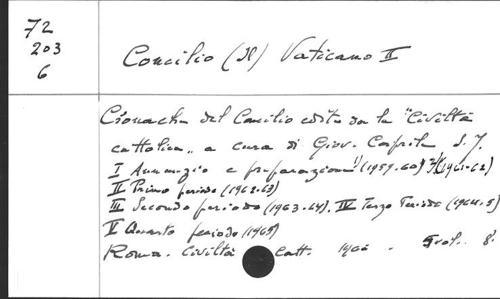 72
203
6
Concilio (Il) Vaticano II
Cronache del Concilio edite da la "Civiltà
cattolica" a cura di Giov. Caprile S. J.
I Annunzio e preparazione 1/(1959-60) 2/(1961-62)
II Primo periodo (1962-63)
III Secondo periodo (1963-64). IV Terzo Periodo (1964-5)
V Quarto periodo (1965)
Roma. Civiltà Catt. 1966. 8°